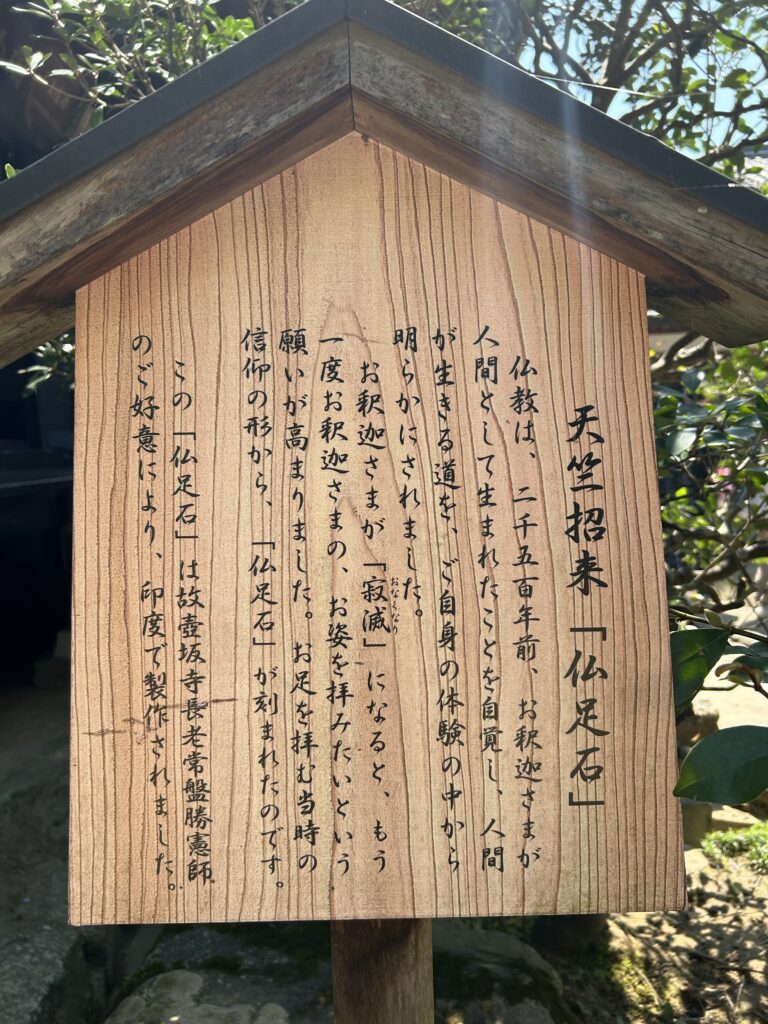 天竺招来「仏足石」
仏教は、二千五百年前、お釈迦さまが
人間として生まれたことを自覚し、人間
が生きる道を、ご自身の体験の中から
明らかにされました。
お釈迦さまが「寂滅」になると、もう
おなくなり
一度お釈迦さまの、お姿を拝みたいという
願いが高まりました。お足を拝む当時の
信仰の形から、「仏足石」が刻まれたのです。
この「仏足石」は故壺坂寺長老常盤勝憲師
のご好意により、印度で製作されました。